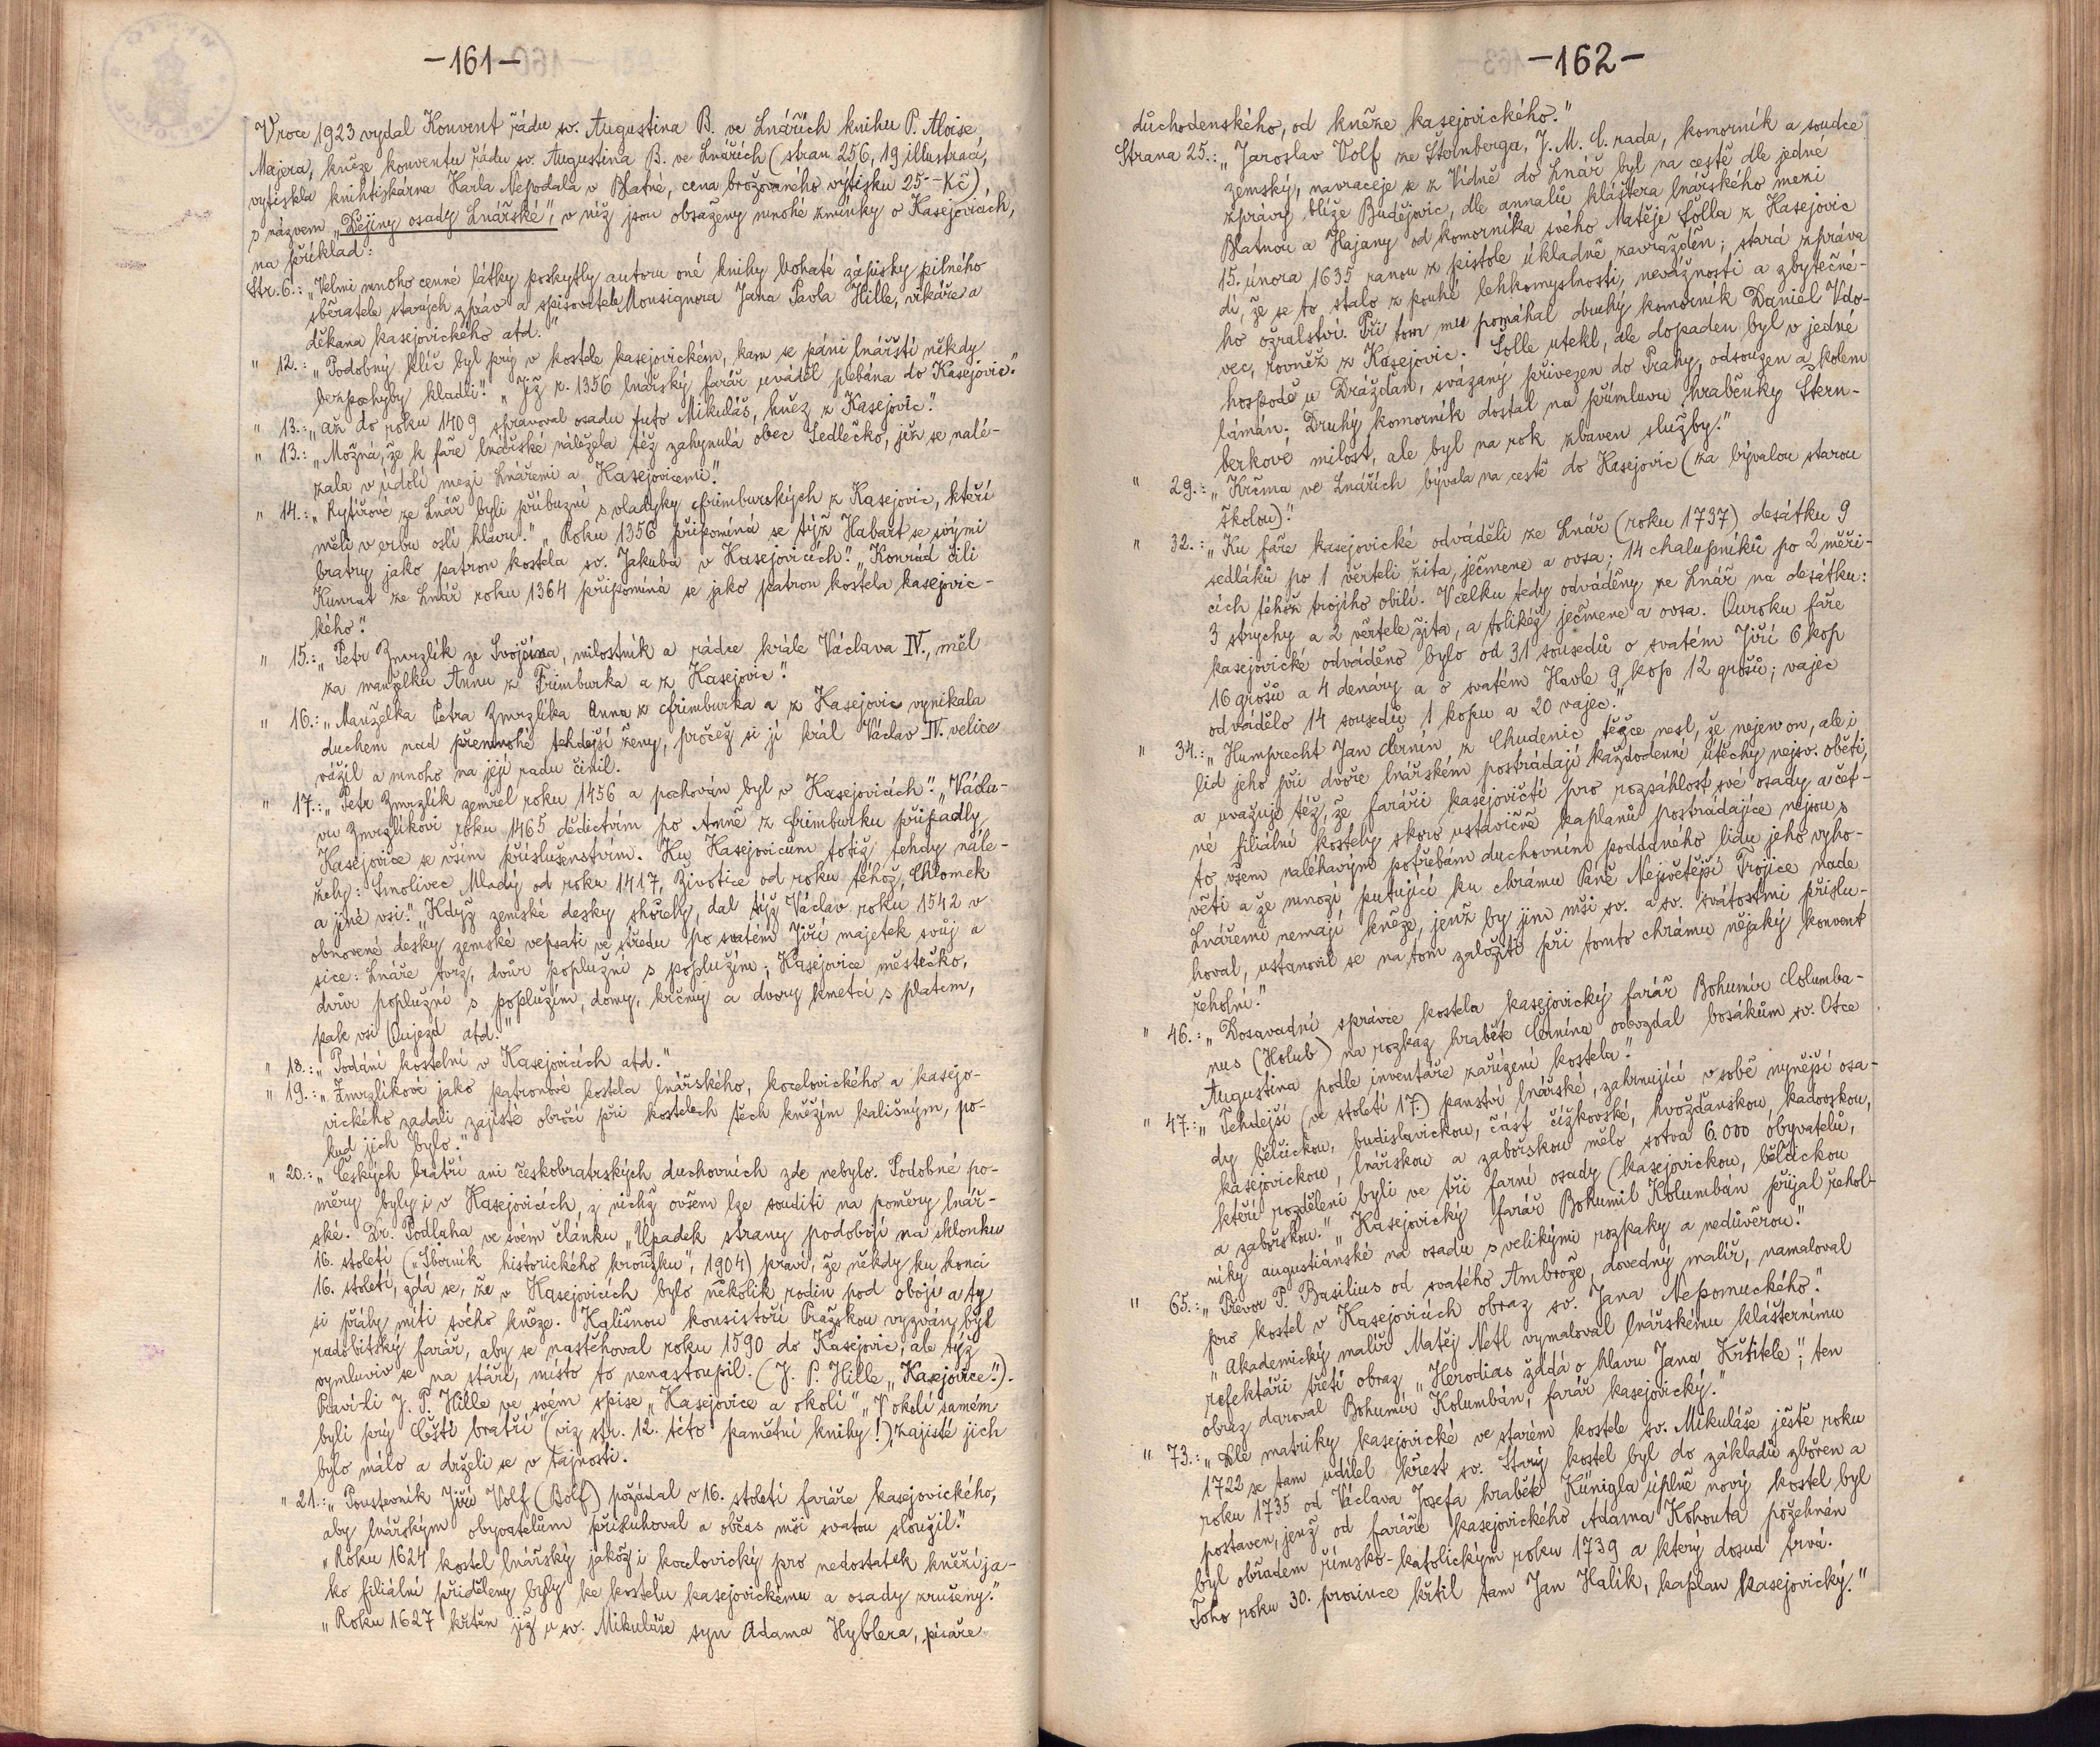 -161-
V roce 1923 vydal Konvent řádu sv. Augustina B. ve Lnářích knihu P. Aloise
Majera, kněze konventu řádu sv. Augustina B. ve Lnářích (stran 256, 19 illustrací,
vytiskla knihtiskárna Karla Nepodala v Blatné, cena brožovaného výtisku 25·-Kč),
s názvem „Dějiny osady Lnářské", v níž jsou obsaženy mnohé zmínky o Kasejovicích,
na příklad:
Str. 6.: „Velmi mnoho cenné látky poskytly autoru oné knihy bohaté zápisky pilného
sběratele starých zpráv a spisovatele Monsignora Jana Pavla Hille, vikáře a
děkana kasejovického atd."
" 12.: „Podobný klíč byl prý v kostele kasejovickém, kam se páni lnářští někdy
bezpochyby kladli." „Již r. 1356 lnářský farář uváděl plebána do Kasejovic."
" 13.: „až do roku 1409 spravoval osadu tuto Mikuláš, kněz z Kasejovic."
" 13.: „Možná, že k faře lnářské náležela též zahynulá obec Sedlečko, jež se nalé-
zala v údolí mezi Lnářemi a Kasejovicemi."
" 14.: „Rytířové ze Lnář byli příbuzní s vladyky Frimburských z Kasejovic, kteří
měli v erbu oslí hlavu." „Roku 1356 připomíná se týž Habart se svými
bratry jako patron kostela sv. Jakuba v Kasejovicích." „Konrád čili
Kunrat ze Lnář roku 1364 připomíná se jako patron kostela kasejovic-
kého."
" 15.: „Petr Zmrzlík ze Svojšína, milostník a rádce krále Václava IV., měl
za manželku Annu z Frimburka a z Kasejovic."
" 16.: „Manželka Petra Zmrzlíka Anna z Frimburka a z Kasejovic vynikala
duchem nad přemnohé tehdejší ženy, pročež si jí král Václav IV. velice
vážil a mnoho na její radu činil.
" 17.: „Petr Zmrzlík zemřel roku 1456 a pochován byl v Kasejovicích." „Václa-
vu Zmrzlíkovi roku 1465 dědictvím po Anně z Frimburku připadly
Kasejovice se vším příslušenstvím. Ku Kasejovicům totiž tehdy nále-
žely: Smolivec Mladý od roku 1417, Životice od roku téhož, Chlomek
a jiné vsi." „Když zemské desky shořely, dal týž Václav roku 1542 v
obnovené desky zemské vepsati ve středu po svatém Jiří majetek svůj a
sice: Lnáře tvrz, dvůr poplužní s poplužím; Kasejovice městečko,
dvůr poplužní s poplužím, domy, krčmy a dvory kmetcí s platem,
pak vsi Oujezd atd."
" 18.: „Podání kostelní v Kasejovicích atd."
" 19.: „Zmrzlíkové jako patronové kostela lnářského, kocelovického a kasejo-
vického zadali zajisté obročí při kostelech těch kněžím kališným, po-
kud jich bylo."
" 20.: „Českých bratří ani českobratrských duchovních zde nebylo. Podobné po-
měry byly i v Kasejovicích, z nichž ovšem lze souditi na poměry lnář-
ské. Dr. Podlaha ve svém článku „Úpadek strany podobojí na sklonku
16. století („Sborník historického kroužku", 1904) praví, že někdy ku konci
16. století, zdá se, že v Kasejovicích bylo několik rodin pod obojí a ty
si přály míti svého kněze. Kališnou konsistoří Pražskou vyzván byl
radobitský farář, aby se nastěhoval roku 1590 do Kasejovic; ale týž
vymluviv se na stáří, místo to nenastoupil. (J. P. Hille „Kasejovice".).
Praví-li J. P. Hille ve svém spise „Kasejovice a okolí" „V okolí samém
byli prý Čeští bratří" (viz str. 12. této pamětní knihy!), zajisté jich
bylo málo a drželi se v tajnosti.
" 21.: „Poustevník Jiří Volf (Bolf) požádal v 16. století faráře kasejovického,
aby lnářským obyvatelům přisluhoval a občas mši svatou sloužil."
„Roku 1624 kostel lnářský jakož i kocelovický pro nedostatek kněží ja-
ko filiální přiděleny byly ke kostelu kasejovickému a osady zrušeny."
„Roku 1627 křtěn již u sv. Mikuláše syn Adama Hyblera, písaře
-162-
důchodenského, od kněze kasejovického."
Strana 25.: „Jaroslav Volf ze Šternberga, J. M. C. rada, komorník a soudce
zemský, navraceje se z Vídně do Lnář byl na cestě dle jedne
zprávy blíže Budějovic, dle annalů kláštera lnářského mezi
Blatnou a Hajany od komorníka svého Matěje Šolla z Kasejovic
15. února 1635 ranou z pistole úkladně zavražděn; stará zpráva
dí, že se to stalo z pouhé lehkomyslnosti, nevážnosti a zbytečné-
ho ožralství. Při tom mu pomáhal druhý komorník Daniel Vdo-
vec, rovněž z Kasejovic. Šolle utekl, ale dopaden byl v jedné
hospodě u Drážďan, svázaný přivezen do Prahy, odsouzen a kolem
lámán. Druhý komorník dostal na přímluvu hraběnky Štern-
berkové milost, ale byl na rok zbaven služby."
" 29.: „Krčma ve Lnářích bývala na cestě do Kasejovic (za bývalou starou
školou)."
" 32.: „Ku faře kasejovické odváděli ze Lnář (roku 1737) desátku 9
sedláků po 1 věrteli žita, ječmene a ovsa; 14 chalupníků po 2 měři-
cích téhož trojího obilí. Vcelku tedy odváděny ze Lnář na desátku:
3 strychy a 2 věrtele žita, a tolikéž ječmene a ovsa. Ouroku faře
kasejovické odváděno bylo od 31 sousedů o svatém Jiří 6 kop
16 grošů a 4 denáry a o svatém Havle 9 kop 12 grošů; vajec
odvádělo 14 sousedů 1 kopu a 20 vajec."
" 34.: „Humprecht Jan Černín z Chudenic těžce nesl, že nejen on, ale i
lid jeho při dvoře lnářském postrádají každodenní útěchy nejsv. oběti,
a uvažuje též, že faráři kasejovičtí pro rozsáhlost své osady a čet-
né filiální kostely skoro ustavičně kaplanů postrádajíce nejsou s
to všem naléhavým potřebám duchovním poddaného lidu jeho vyho-
věti a že mnozí putující ku chrámu Páně Nejsvětější Trojice nade
Lnářemi nemají kněze, jenž by jim mši sv. a sv. svátostmi přislu-
hoval, ustanovil se na tom založiti při tomto chrámu nějaký konvent
řeholní."
" 46.: „Dosavadní správce kostela kasejovický farář Bohumír Columba-
nus (Holub) na rozkaz hraběte Černína odevzdal bosákům sv. Otce
Augustina podle inventáře zařízení kostela."
" 47.: „Tehdejší (ve století 17.) panství lnářské, zahrnující v sobě nynější osa-
dy bělčickou, budislavickou, část čížkovské, hvožďanskou, kadovskou,
kasejovickou, lnářskou a zabořskou mělo sotva 6.000 obyvatelů,
kteří rozděleni byli ve tři farní osady (kasejovickou, bělčickou
a zabořskou." „Kasejovický farář Bohumil Kolumbán přijal řehol-
níky augustiánské na osadu s velikými rozpaky a nedůvěrou."
" 65.: „Převor P. Basilius od svatého Ambrože, dovedný malíř, namaloval
pro kostel v Kasejovicích obraz sv. Jana Nepomuckého."
„Akademický malíř Matěj Netl vymaloval lnářskému klášternímu
refektáři třetí obraz „Herodias žádá o hlavu Jana Křtitele"; ten
obraz daroval Bohumír Kolumbán, farář kasejovický."
" 73.: „Dle matriky kasejovické ve starém kostele sv. Mikuláše ještě roku
1722 se tam udílel křest sv. Starý kostel byl do základů zbořen a
roku 1735 od Václava Josefa hraběte Künigla úplně nový kostel byl
postaven, jenž od faráře kasejovického Adama Kohouta požehnán
byl obřadem římsko-katolickým roku 1739 a který dosud trvá.
Toho roku 30. prosince křtil tam Jan Halík, kaplan kasejovický."